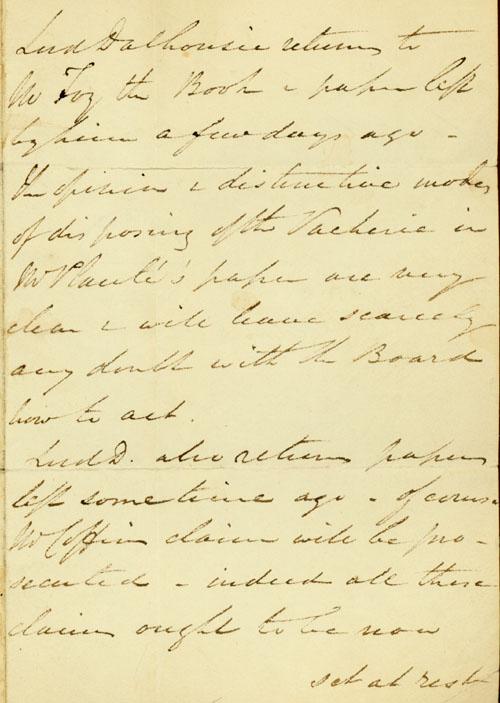 Lord Dalhousie returns to
Mr Foy the Book & papers left
by him a few days ago -
The opinion & distinctive modes
of disposing of the Vacherie in
Mr Planté's paper are very
clear & will leave scarcely
any doubt with the Board
how to act.
Lord D. also returns papers
left some time ago - of course
Mr Coffin claim will be pro-
secuted - indeed all these
claims ought to be now
set at rest